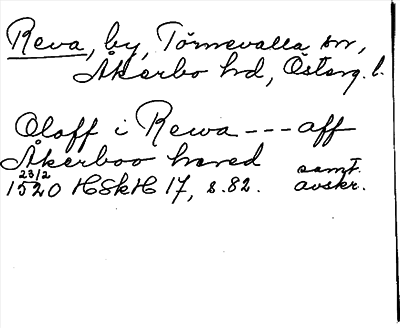 Reva, by, Törnevalla sn,
Åkerbo hd, Österg. l.
Oloff i Rewa --- aff
Åkerboo hæred
23/2 samt.
1520 HSkH 17, s. 82. avskr.